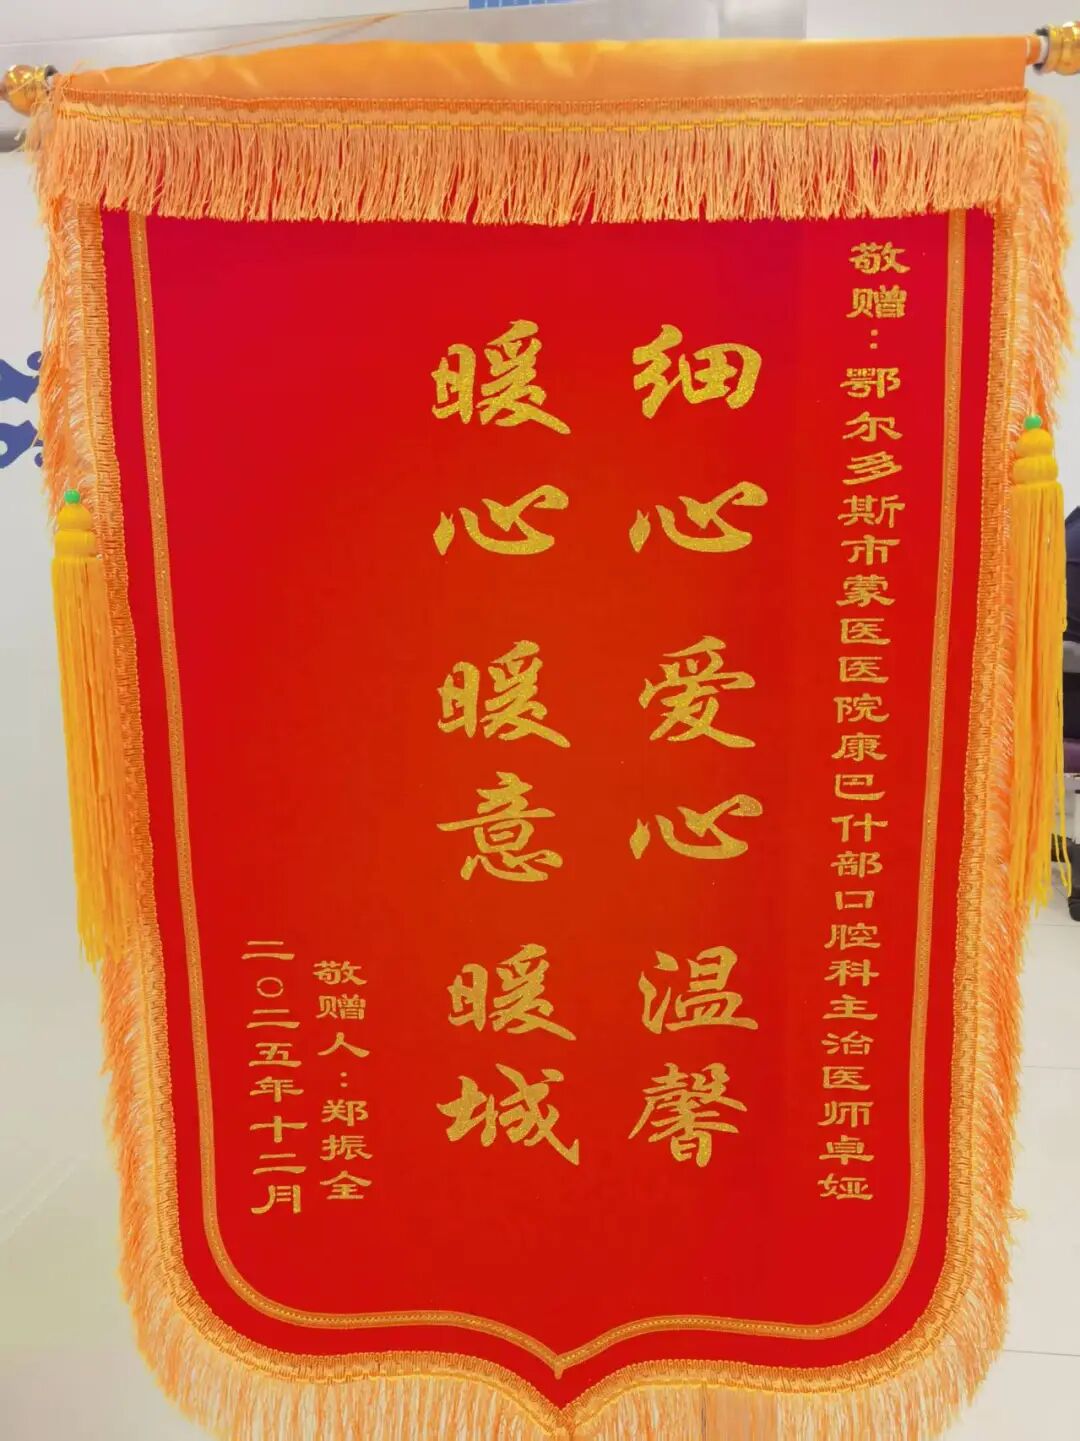 敬赠：鄂尔多斯市蒙医医院康巴什部口腔科主治医师卓娅
细心爱心温馨
暖心暖意暖城
敬赠人：郑振全
二〇二五年十二月